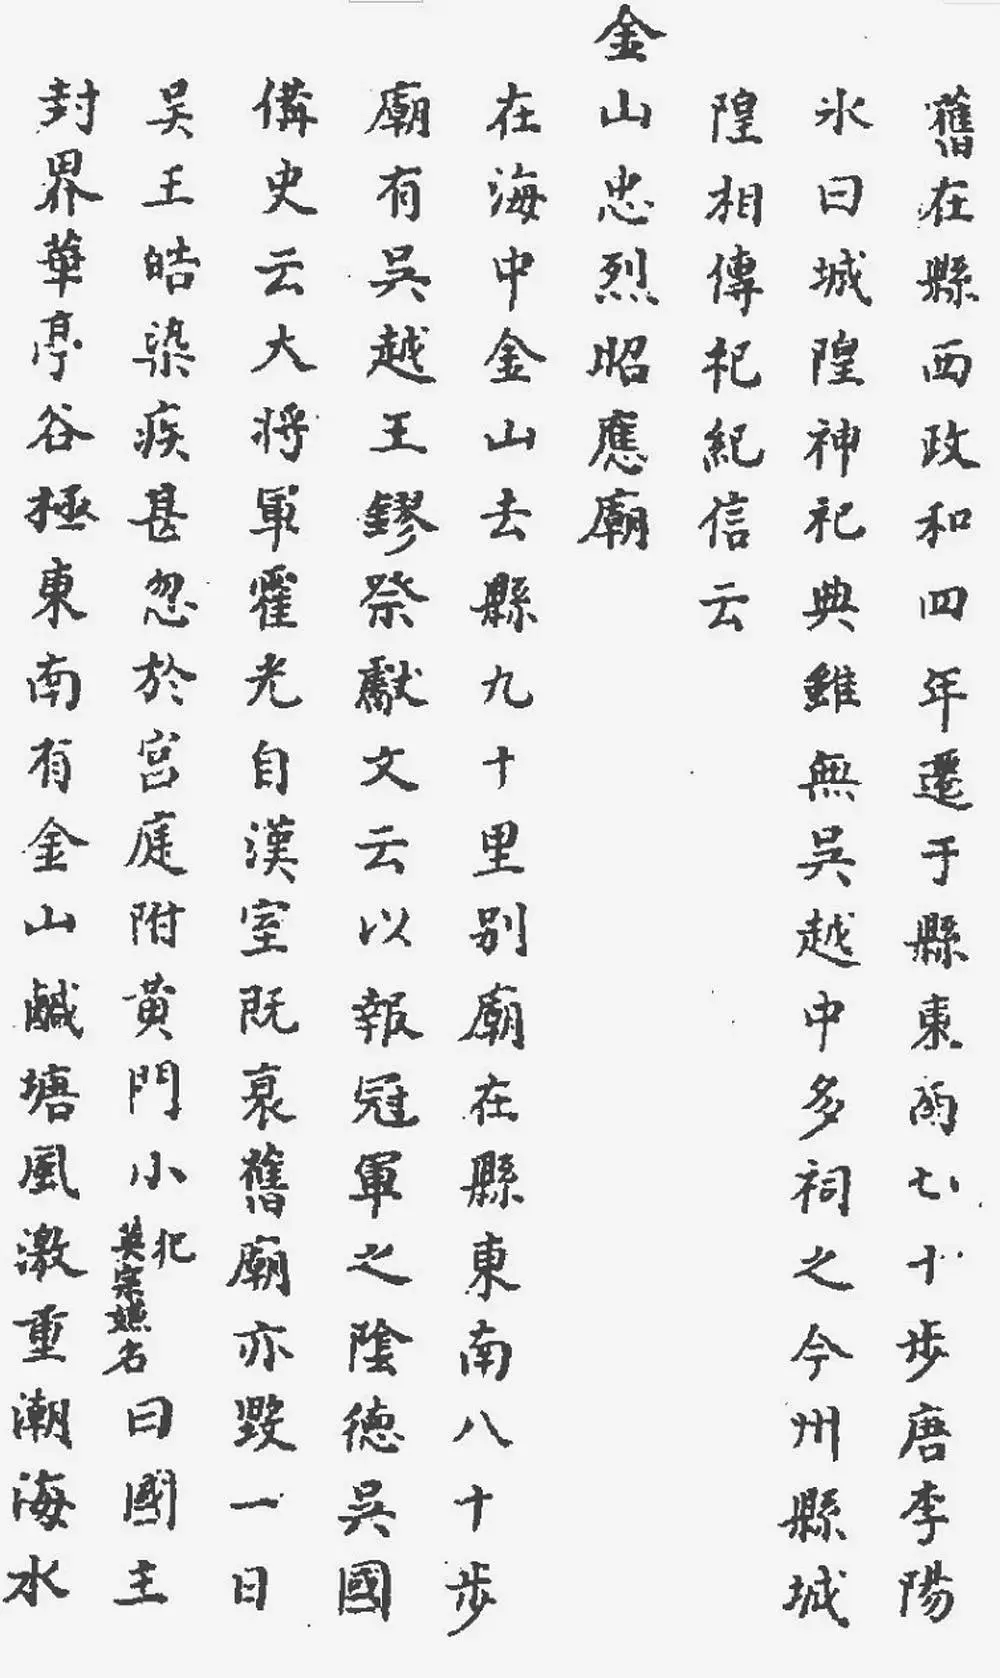 舊在縣西政和四年遷于縣東南七十步唐李陽
氷曰城隍神祀典雖無吳越中多祠之今州縣城
隍相傳祀紀信云
金山忠烈昭應廟
在海中金山去縣九十里別廟在縣東南八十步
廟有吳越王鏐祭獻文云以報冠軍之陰德吳國
備史云大將軍霍光自漢室既衰舊廟亦毀一日
吳王皓染疾甚忽於宮庭附黃門小犯英宗嫌名曰國主
封界華亭谷極東南有金山鹹塘風激重潮海水